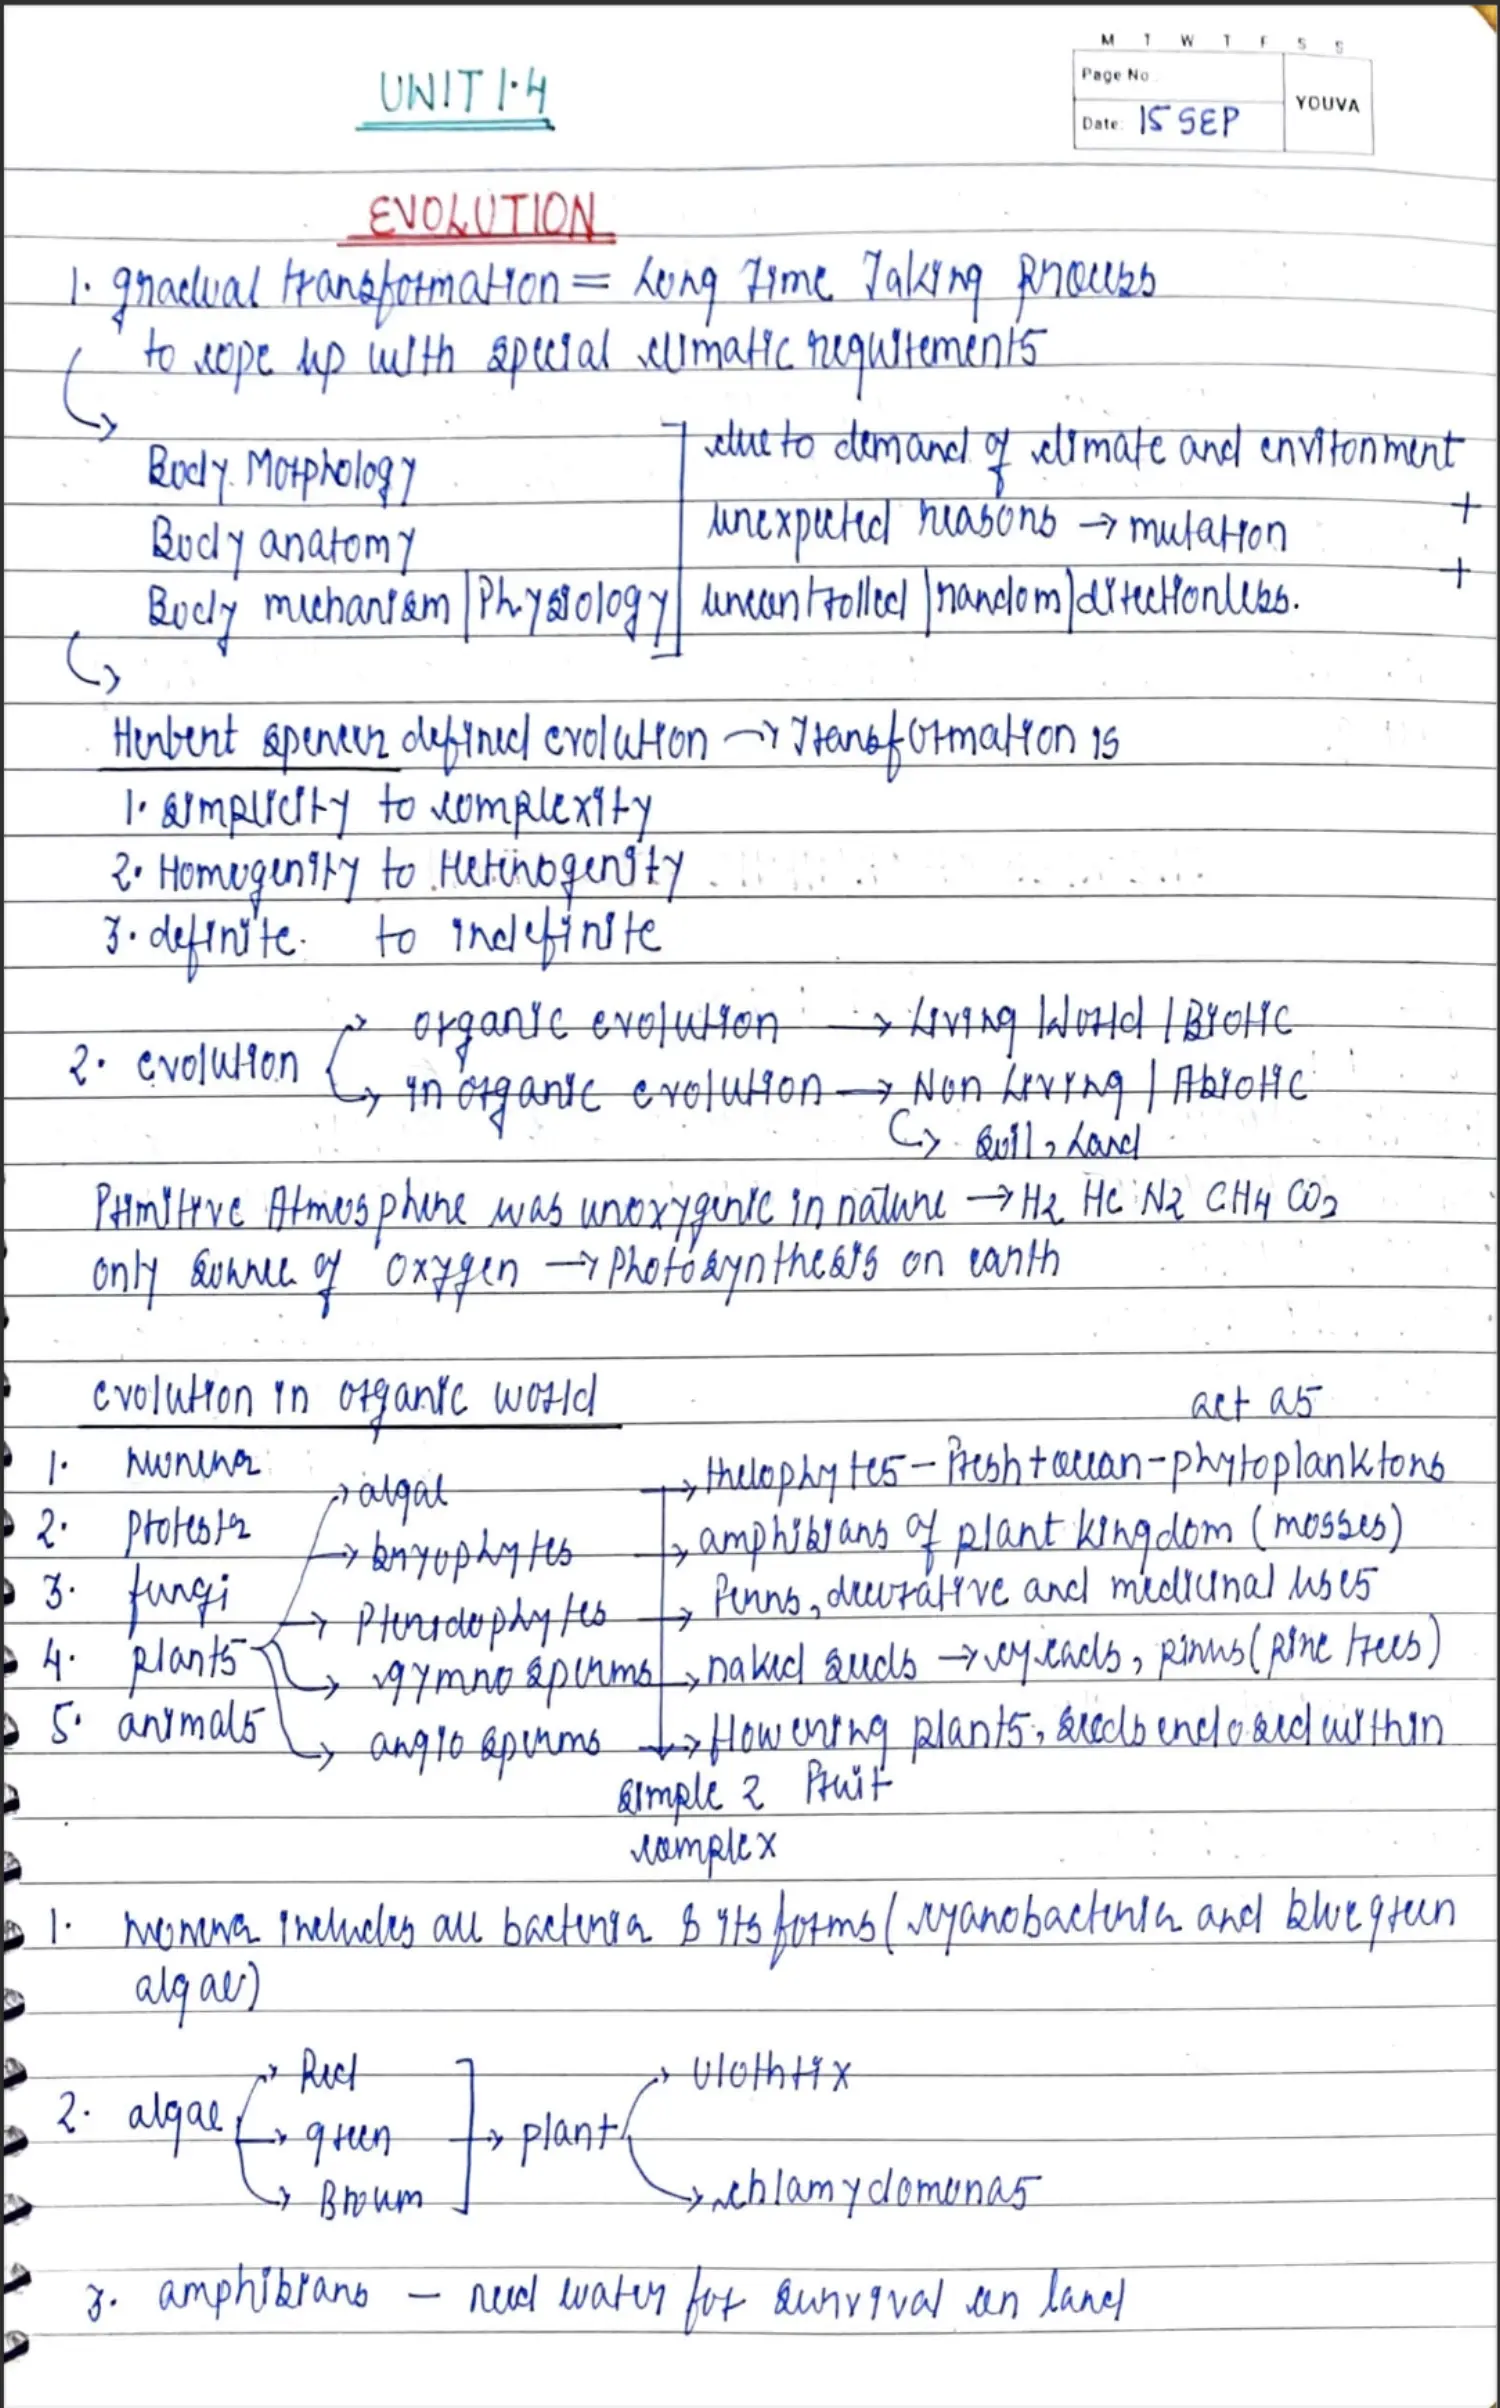 M T W T F S S
Page No.
YOUVA
Date: 15 SEP
UNIT 1.4
EVOLUTION
1. gradual transformation = Long Time Taking Process
to cope up with special climatic requirements
Body Morphology
Body anatomy
Body mechanism | Physiology
due to demand of climate and environment +
unexpected reasons → mutation +
uncontrolled | random | directionless.
Herbert spencer defined evolution → Transformation is
1. simplicity to complexity
2. Homogenity to Heterogenity
3. definite. to indefinite
2. evolution
organic evolution → Living World | Biotic
in organic evolution → Non Living | Abiotic
↳ Soil, Land
Primitive Atmosphere was unoxygenic in nature → H2 He N2 CH4 CO2
only source of oxygen → Photosynthesis on earth
evolution in organic world
act as
1. monera
2. protesta
3. fungi
4. plants
5. animals
→ algae → thelophytes - Fresh + ocean - phytoplanktons
→ bryophytes → amphibians of plant kingdom (mosses)
→ Pteridophytes → Ferns, decorative and medicinal uses
→ gymno sperms → naked seeds → cycads, pinus (pine trees)
→ angio sperms → flowering plants, seeds enclosed within
simple 2 Fruit
complex
1. monera includes all bacteria & its forms (cyanobacteria and blue green
algae)
2. algae
→ Red
→ green
→ Brown
→ plant
→ Ulothrix
→ chlamydomonas
3. amphibians — need water for survival on land